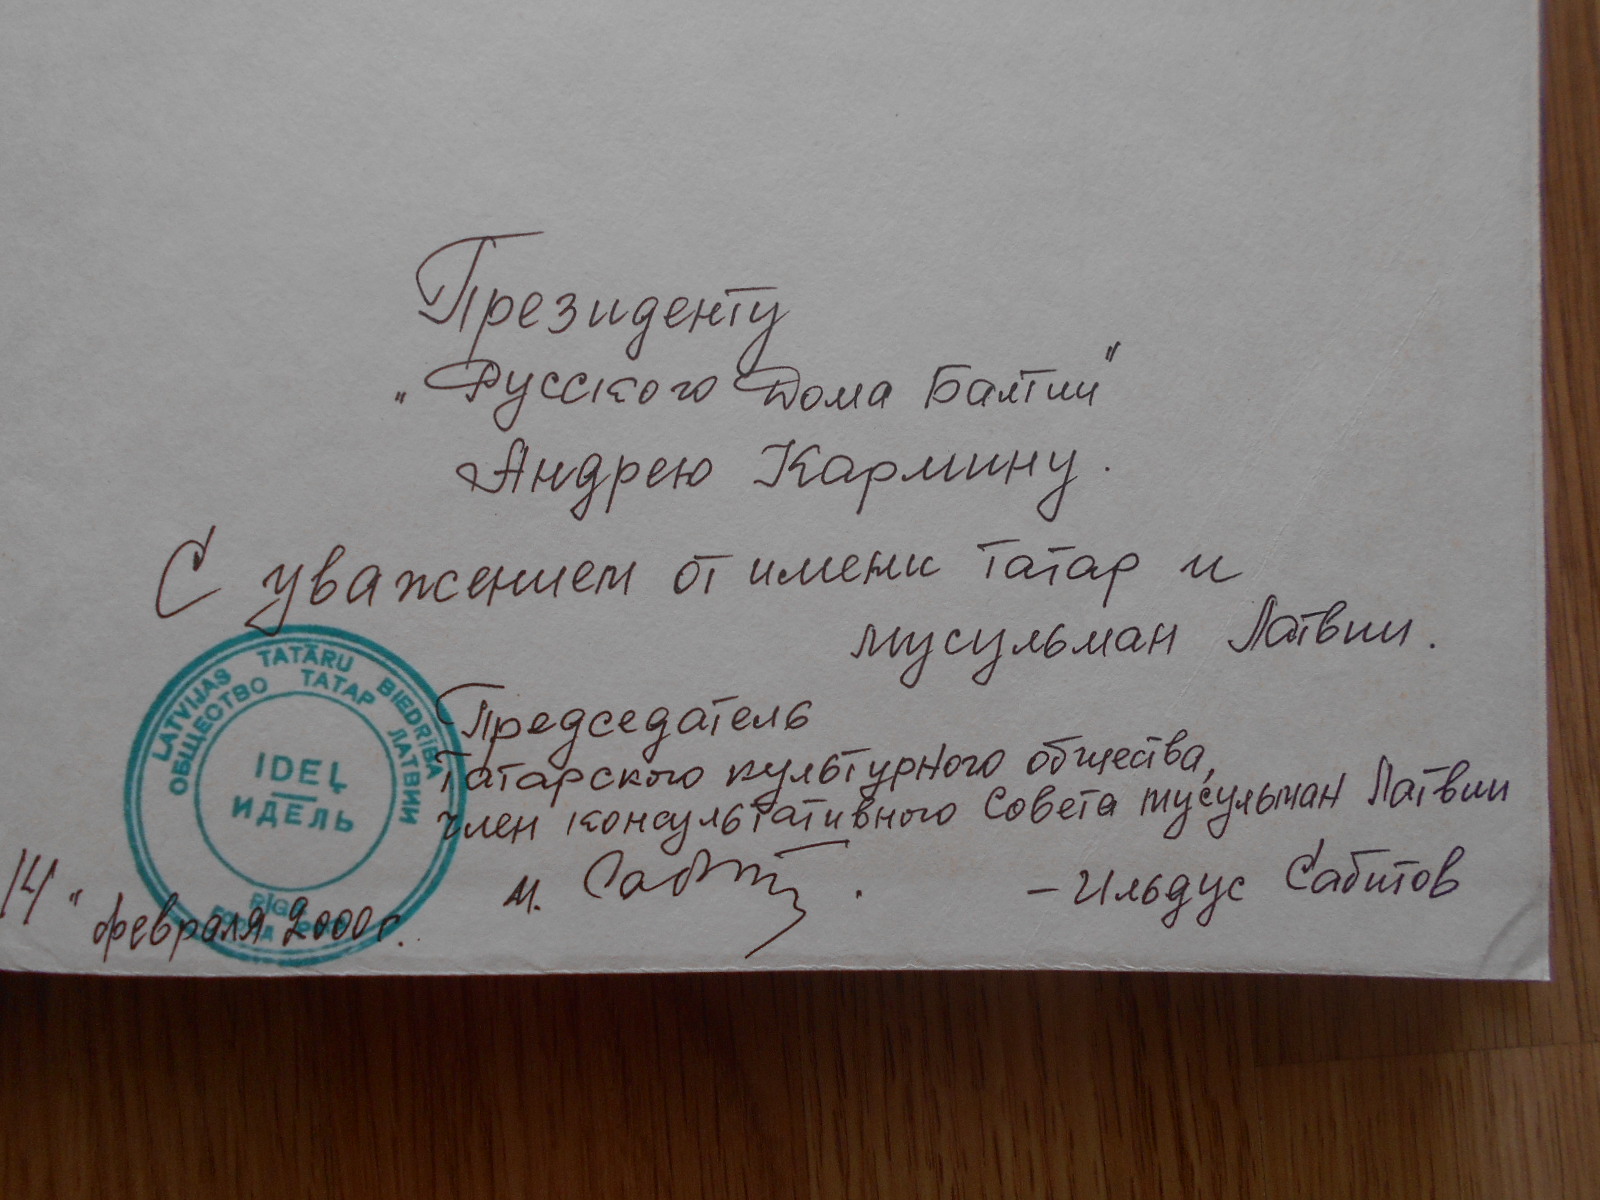 Президенту
"Русского Дома Балтии"
Андрею Кармину.
С уважением от имени татар и
мусульман Латвии.
Председатель
Татарского культурного общества,
член консультативного Совета мусульман Латвии
И. Сабит .
– Ильдус Сабитов
14" февраля 2000 г.
LATVIJAS TATĀRU BIEDRĪBA
ОБЩЕСТВО ТАТАР ЛАТВИИ
IDEĻ
ИДЕЛЬ
RĪGA